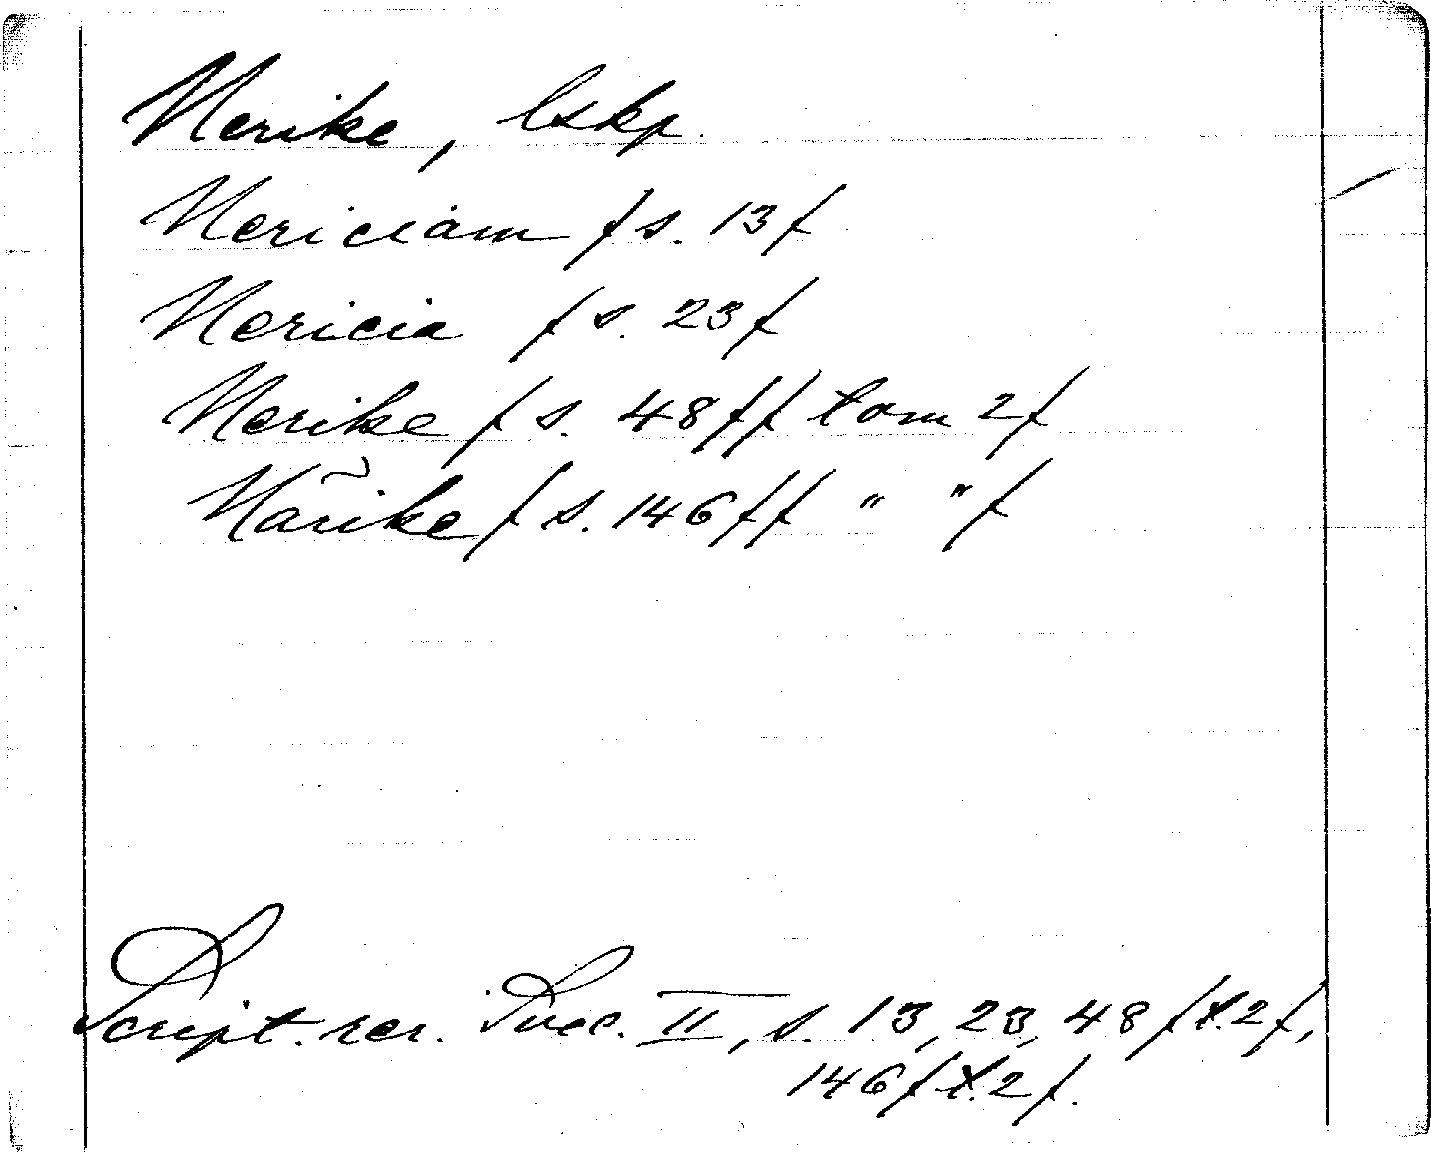 Nerike, lskp.
Nericiam / s. 13 /
Nericia / s. 23 /
Nerike / s. 48 // tom 2 /
Närike / s. 146 // " " /
Script. rer. Svec. II, s. 13, 23, 48 / t. 2 /,
146 / t. 2 /.